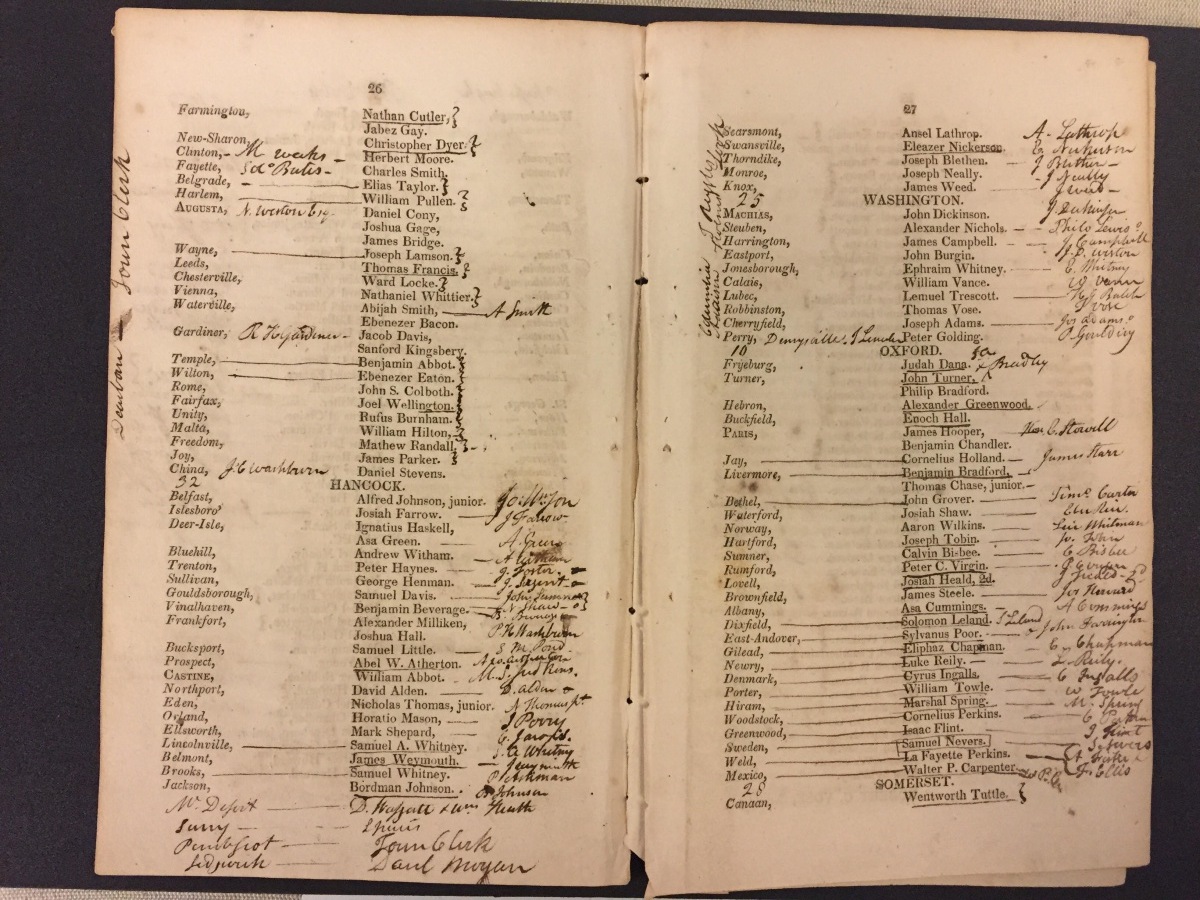 26
Farmington, Nathan Cutler,
Jabez Gay.
New-Sharon, Christopher Dyer.
Clinton, - M weeks - Herbert Moore.
Fayette, Charles Smith.
Belgrade, Elias Taylor.
Harlem, William Pullen.
AUGUSTA, N. Weston Esq. Daniel Cony,
Joshua Gage,
James Bridge.
Wayne, Joseph Lamson.
Leeds, Thomas Francis.
Chesterville, Ward Locke.
Vienna, Nathaniel Whittier.
Waterville, Abijah Smith, A Smith
Ebenezer Bacon.
Gardiner, R H Gardiner - Jacob Davis,
Sanford Kingsbery.
Temple, Benjamin Abbot.
Wilton, Ebenezer Eaton.
Rome, John S. Colboth.
Fairfax, Joel Wellington.
Unity, Rufus Burnham.
Malta, William Hilton,
Freedom, Mathew Randall,
Joy, James Parker.
China, J C Washburn Daniel Stevens.
32 HANCOCK.
Belfast, Alfred Johnson, junior.
Islesboro' Josiah Farrow. J Farrow
Deer-Isle, Ignatius Haskell,
Asa Green. A. Green
Bluehill, Andrew Witham. A Witham
Trenton, Peter Haynes. J. Foster.
Sullivan, George Henman. J. Sargent
Gouldsborough, Samuel Davis.
Vinalhaven, Benjamin Beverage. N. Shaw
Frankfort, Alexander Milliken,
Joshua Hall. P H Washburn
Bucksport, Samuel Little. S M Pond
Prospect, Abel W. Atherton.
CASTINE, William Abbot.
Northport, David Alden. D. alden
Eden, Nicholas Thomas, junior. N Thomas
Orland, Horatio Mason, J Perry
Ellsworth, Mark Shepard,
Lincolnville, Samuel A. Whitney. S. A. Whitney
Belmont, James Weymouth.
Brooks, Samuel Whitney.
Jackson, Bordman Johnson. B Johnson
Mt Desert D. Wasgatt & Wm Heath
Surry
Penobscot Town Clerk
Sedgwick Danl Morgan
Town Clerk
27
Searsmont, Ansel Lathrop. A. Lathrop
Swansville, Eleazer Nickerson. E Nickerson
Thorndike, Joseph Blethen. J Blethen
Monroe, Joseph Neally. J Neally
Knox, James Weed. J Weed
25 WASHINGTON.
MACHIAS, John Dickinson. J. Dickinson
Steuben, Alexander Nichols. Philo Lewis
Harrington, James Campbell. J. Campbell
Eastport, John Burgin. J. D. Weston
Jonesborough, Ephraim Whitney. E. Whitney
Calais, William Vance.
Lubec, Lemuel Trescott.
Robbinston, Thomas Vose. Vose
Cherryfield, Joseph Adams. Jos Adams
Perry, Dennysville. J Lincoln Peter Golding. P. Goulding
10 OXFORD.
Fryeburg, Judah Dana.
Turner, John Turner, Bradley
Philip Bradford.
Hebron, Alexander Greenwood.
Buckfield, Enoch Hall.
PARIS, James Hooper, C. Stowell
Benjamin Chandler.
Jay, Cornelius Holland. James Starr
Livermore, Benjamin Bradford,
Thomas Chase, junior.
Bethel, John Grover. Timo Carter
Waterford, Josiah Shaw.
Norway, Aaron Wilkins. Levi Whitman
Hartford, Joseph Tobin. Jo. Tobin
Sumner, Calvin Bisbee. C Bisbee
Rumford, Peter C. Virgin.
Lovell, Josiah Heald, 2d.
Brownfield, James Steele. Jos Howard
Albany, Asa Cummings. A Cummings
Dixfield, Solomon Leland. S Leland
East-Andover, Sylvanus Poor. John Farrington
Gilead, Eliphaz Chapman. E. Chapman
Newry, Luke Reily. L. Reily.
Denmark, Cyrus Ingalls. C Ingalls
Porter, William Towle. W Towle
Hiram, Marshal Spring. M. Spring
Woodstock, Cornelius Perkins. C Perkins
Greenwood, Isaac Flint. I Flint
Sweden, Samuel Nevers. S Nevers
Weld, La Fayette Perkins.
Mexico, Walter P. Carpenter.
28 SOMERSET.
Canaan, Wentworth Tuttle.